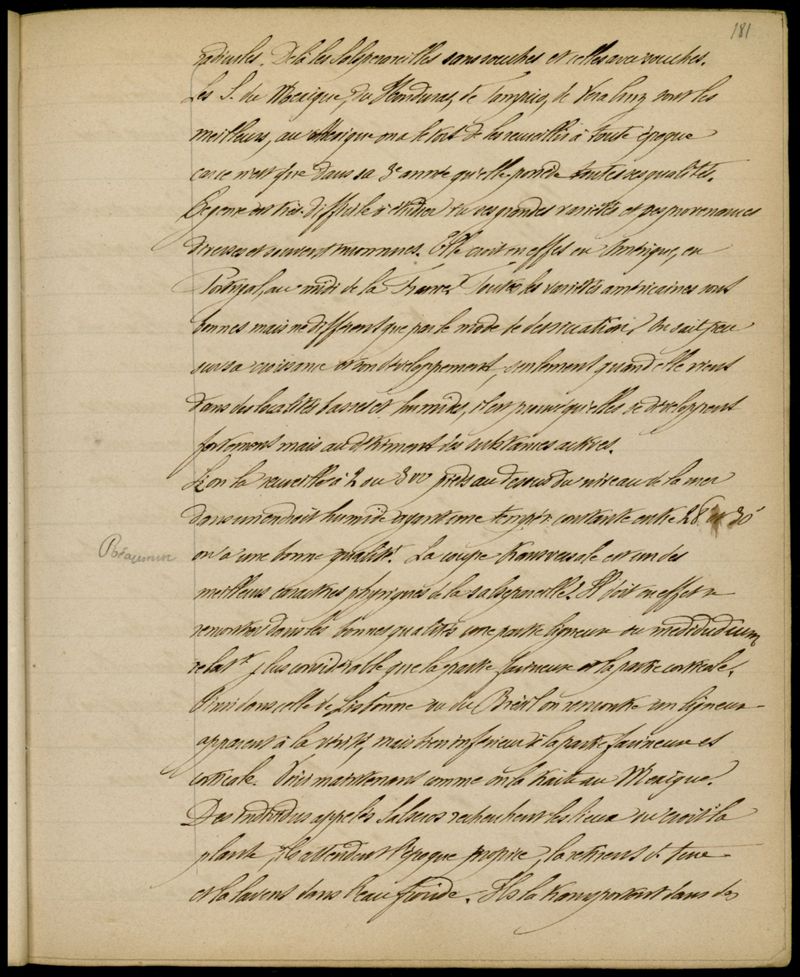 181
radicules. De là les Salsepareilles sans souches et celles avec souches.
Les S. du Mexique, du Honduras, de Tampico, de Vera Cruz sont les
meilleurs, au Mexique on a le tort de les recueillir à toute époque
car ce n'est que dans sa 3e année qu'elle possède toutes ses qualités.
Ce genre est très difficile à étudier vu ses grandes variétés et ses provenances
diverses et souvent inconnues. Elle croit en effet en Amérique, en
Portugal, au midi de la France. Toutes les variétés américaines sont
bonnes mais ne diffèrent que par le mode de dessication. On sait peu
sur sa croissance et son développement, seulement quand elle vient
dans des localités basses et humides, il est prouvé qu'elles se développent
fortement mais au détriment des substances actives.
Si on la recueille à 2 ou 300 pieds au dessus du niveau de la mer
dans un endroit humide ayant une tempér constante entre 28° et 30°
Réaumur
on a une bonne qualité. La coupe transversale est un des
meilleurs caractères physiques de la salsepareille. Il doit en effet se
rencontrer dans les bonnes qualités une partie ligneuse ou meditullium
relatt plus considérable que la partie farineuse et la partie corticale.
Ainsi dans celle de Lisbonne ou du Brésil on rencontre un ligneux
apparent à la vérité, mais bien inférieur à la partie farineuse et
corticale. Voici maintenant comme on la traite au Mexique.
Des individus appelés recherchent les lieux où croit la
plante, ils attendent l'époque propice, la retirent de terre
et la lavent dans l'eau froide. Ils la transportent dans des